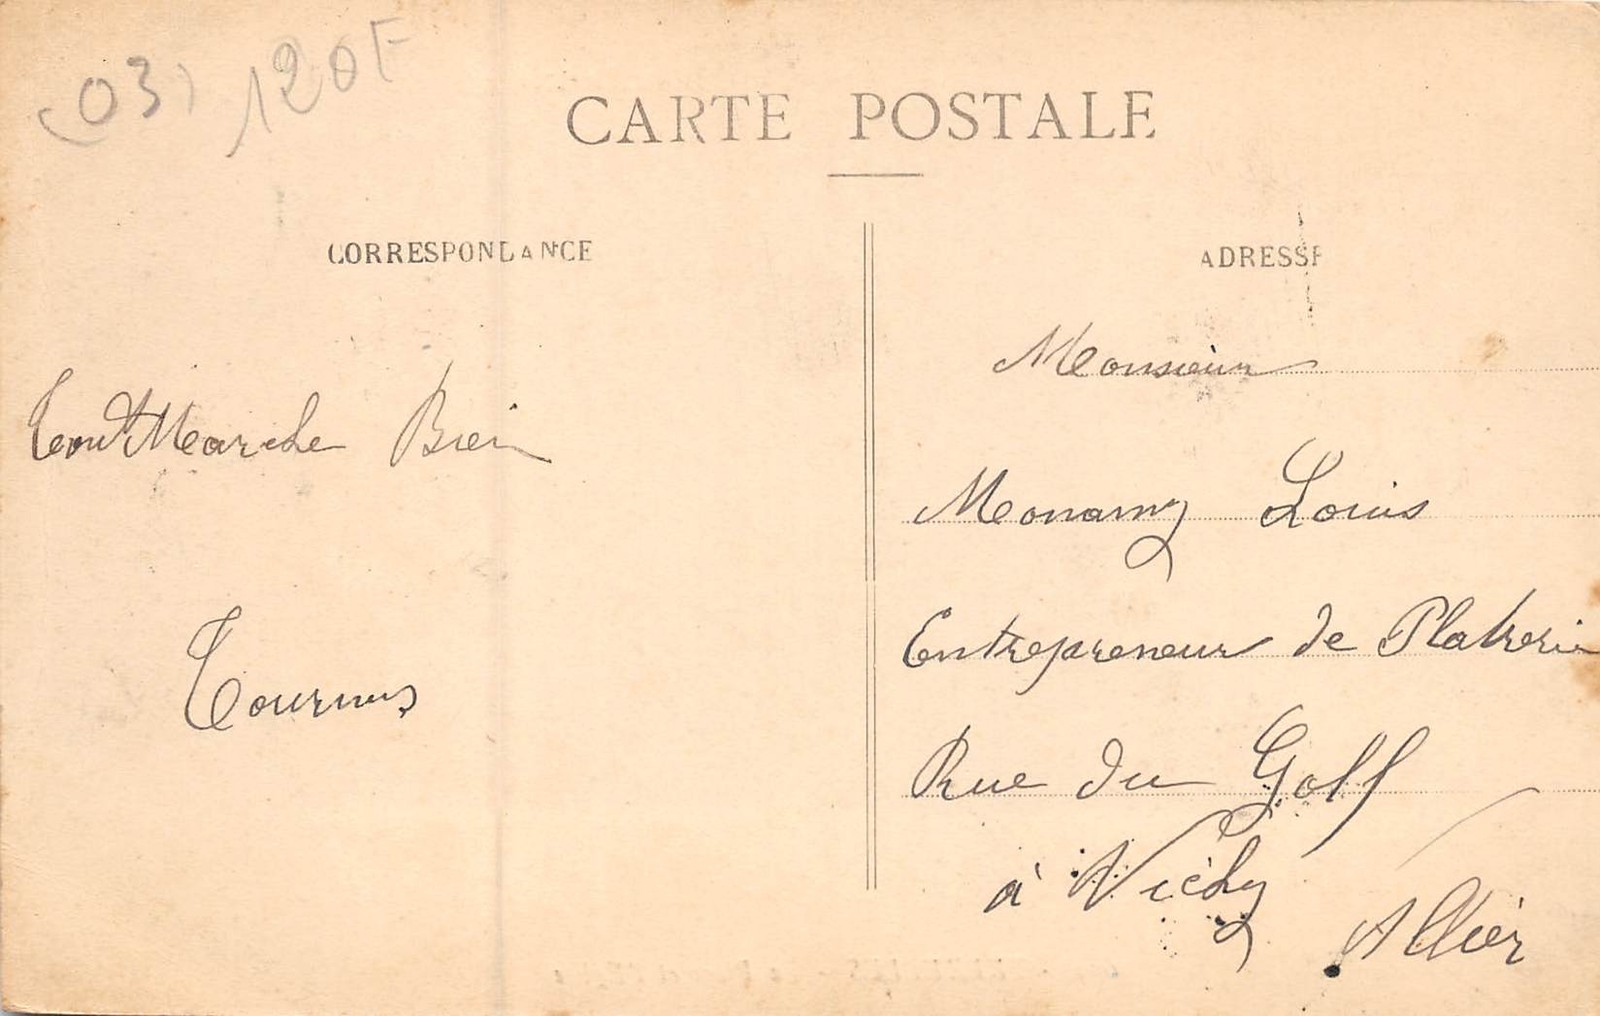 (03) 120F
CARTE POSTALE
CORRESPONDANCE
ADRESSE
Tout Marche Bien
Tournus
Monsieur
Monamy Louis
Entrepreneur de Platrerie
Rue du Golf
à Vichy
Allier